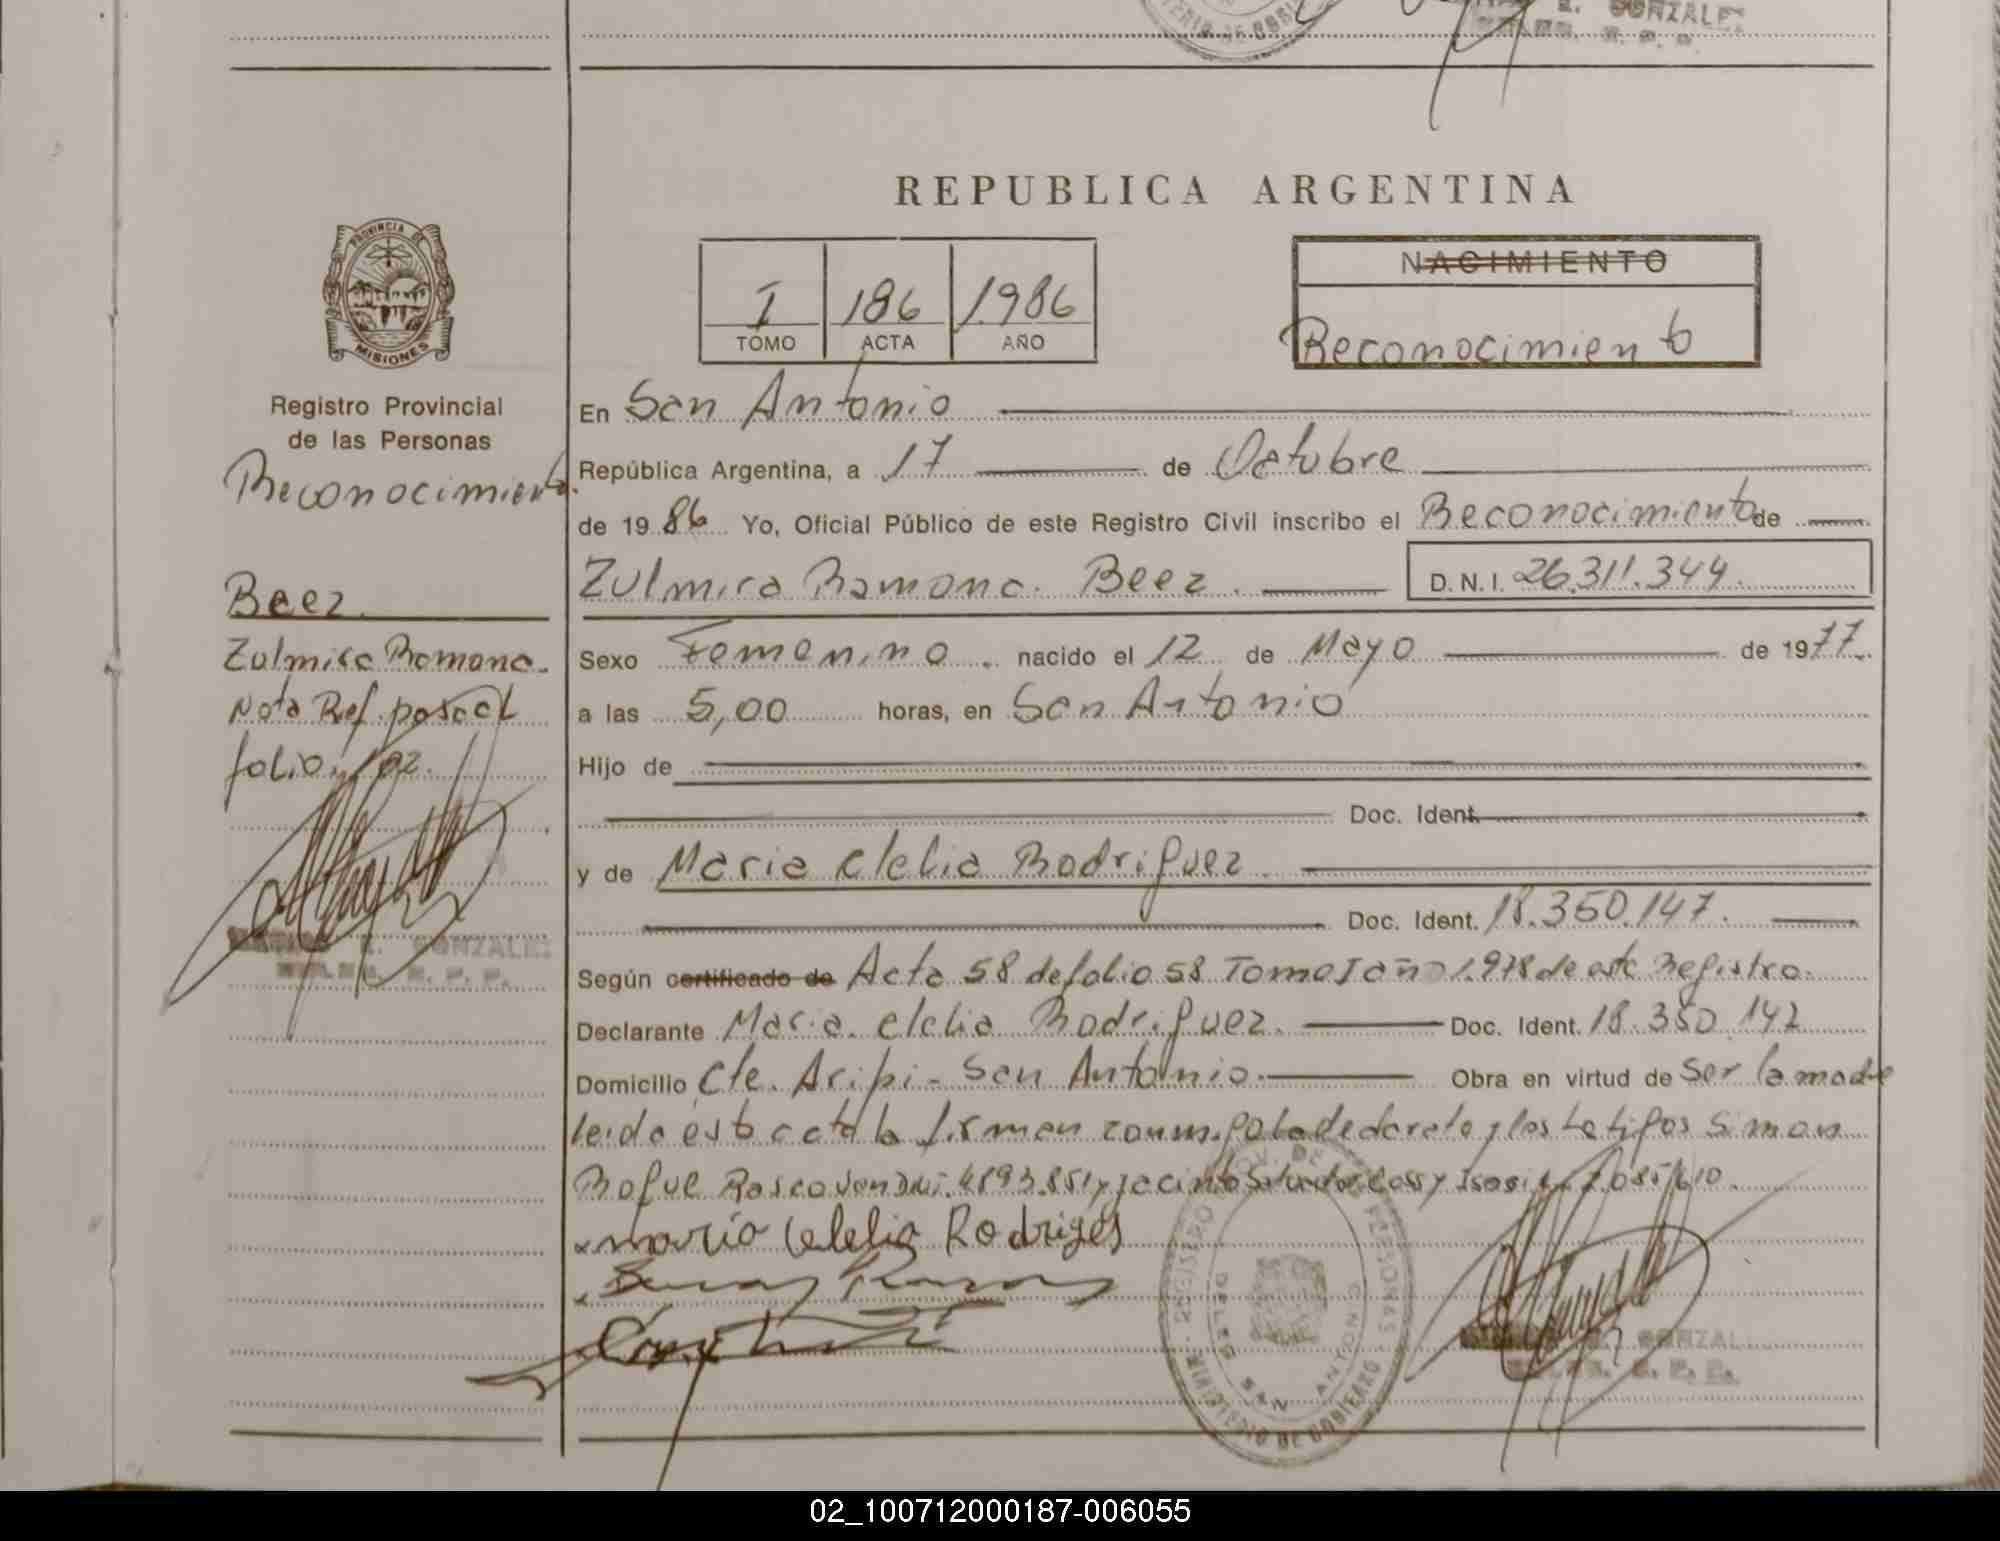 E. GONZALEZ
REPUBLICA ARGENTINA
PROVINCIA DE
MISIONES
NACIMIENTO
I 186 1986
TOMO ACTA AÑO
Reconocimiento
Registro Provincial
de las Personas
Reconocimiento.
Beez
Zulmira Ramona.
Nota Ref. pasa al
folio 192.
E. GONZALEZ
R. P. P.
En San Antonio
República Argentina, a 17 de Octubre
de 1986 Yo, Oficial Público de este Registro Civil inscribo el Reconocimiento de
Zulmira Ramona. Beez. D. N. I. 26.311.344.
Sexo Femenino. nacido el 12 de Mayo de 1977.
a las 5,00 horas, en San Antonio
Hijo de
Doc. Ident.
y de Maria Clelia Rodriguez.
Doc. Ident. 18.350.147.
Según certificado de Acta 58 del folio 58 Tomo I año 1.978 de este Registro.
Declarante Maria. Clelia Rodriguez. Doc. Ident. 18.350.147
Domicilio Cte. Aripi - San Antonio. Obra en virtud de Ser la madre
leida esta acta la firman conmigo la declarante y los testigos Simon
Roque Rasco DNI. 4893.851 y Jacinto 7.085.610.
x maria Clelia Rodriges
REGISTRO PROV. DE LAS PERSONAS
MINISTERIO DE GOBIERNO
SAN ANTONIO
GONZALEZ
R. P. P.
02_100712000187-006055